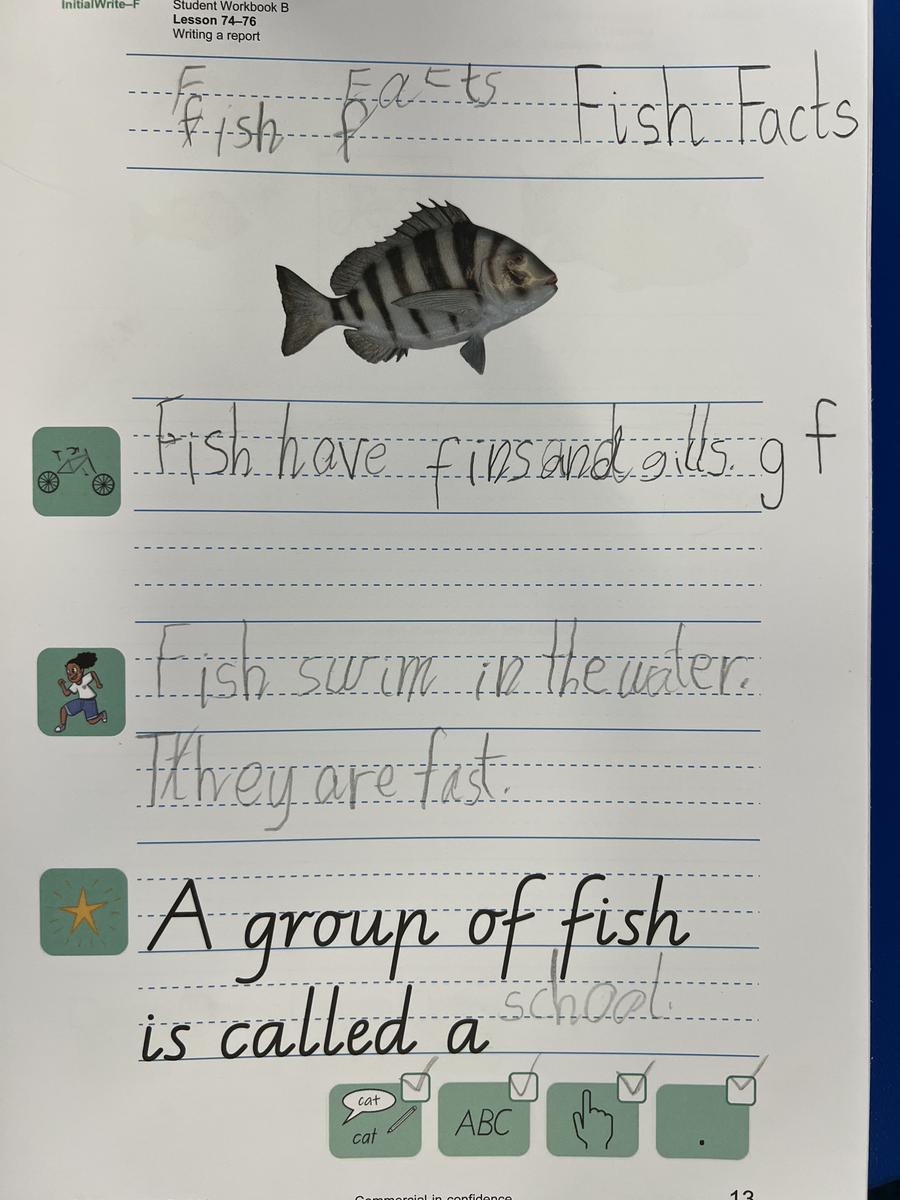 InitialWrite–F
Student Workbook B
Lesson 74–76
Writing a report
Fish Facts Fish Facts
Fish have fins and gills. g f
Fish swim in the water.
Tthey are fast.
A group of fish
is called a school.
cat
cat
ABC
.
Commercial in confidence
13